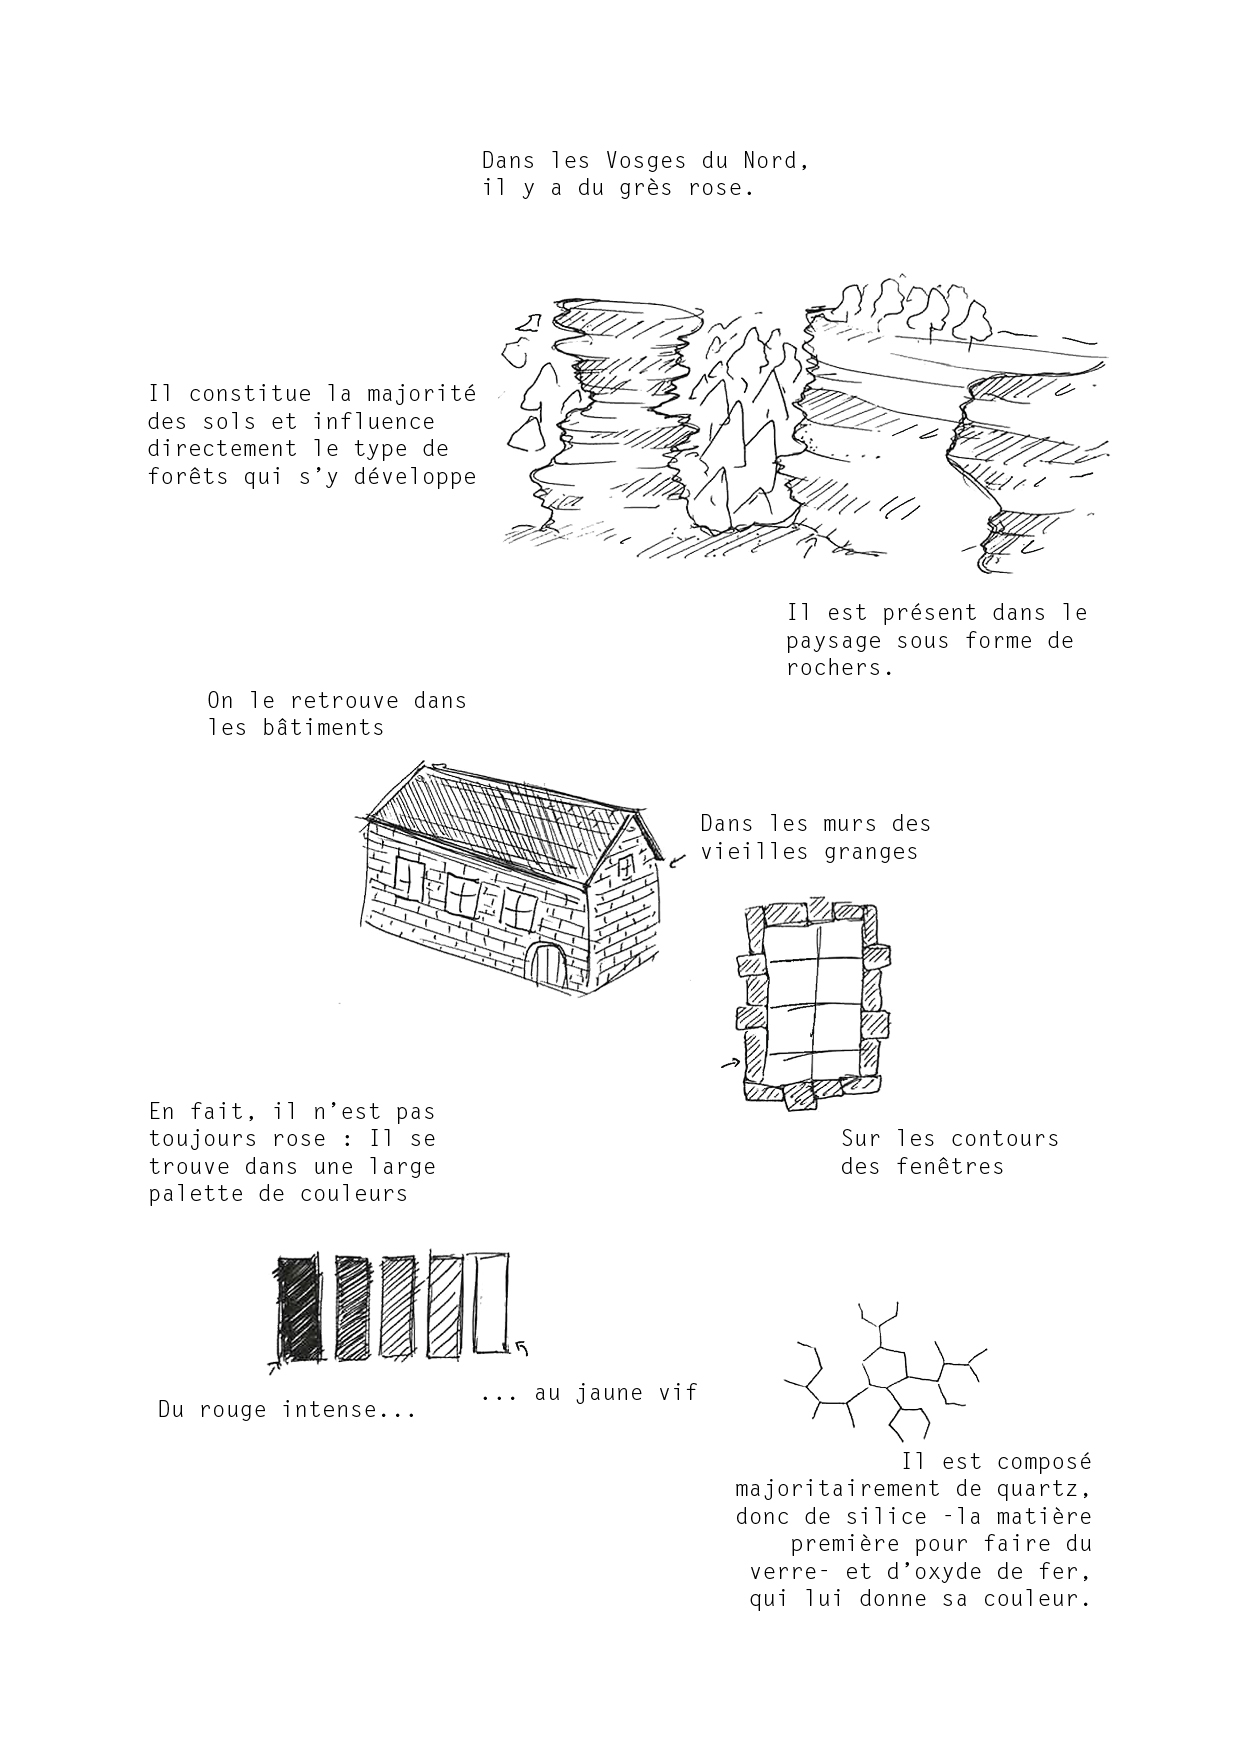 Dans les Vosges du Nord,
il y a du grès rose.
Il constitue la majorité
des sols et influence
directement le type de
forêts qui s’y développe
Il est présent dans le
paysage sous forme de
rochers.
On le retrouve dans
les bâtiments
Dans les murs des
vieilles granges
Sur les contours
des fenêtres
En fait, il n’est pas
toujours rose : Il se
trouve dans une large
palette de couleurs
Du rouge intense...
... au jaune vif
Il est composé
majoritairement de quartz,
donc de silice -la matière
première pour faire du
verre- et d’oxyde de fer,
qui lui donne sa couleur.